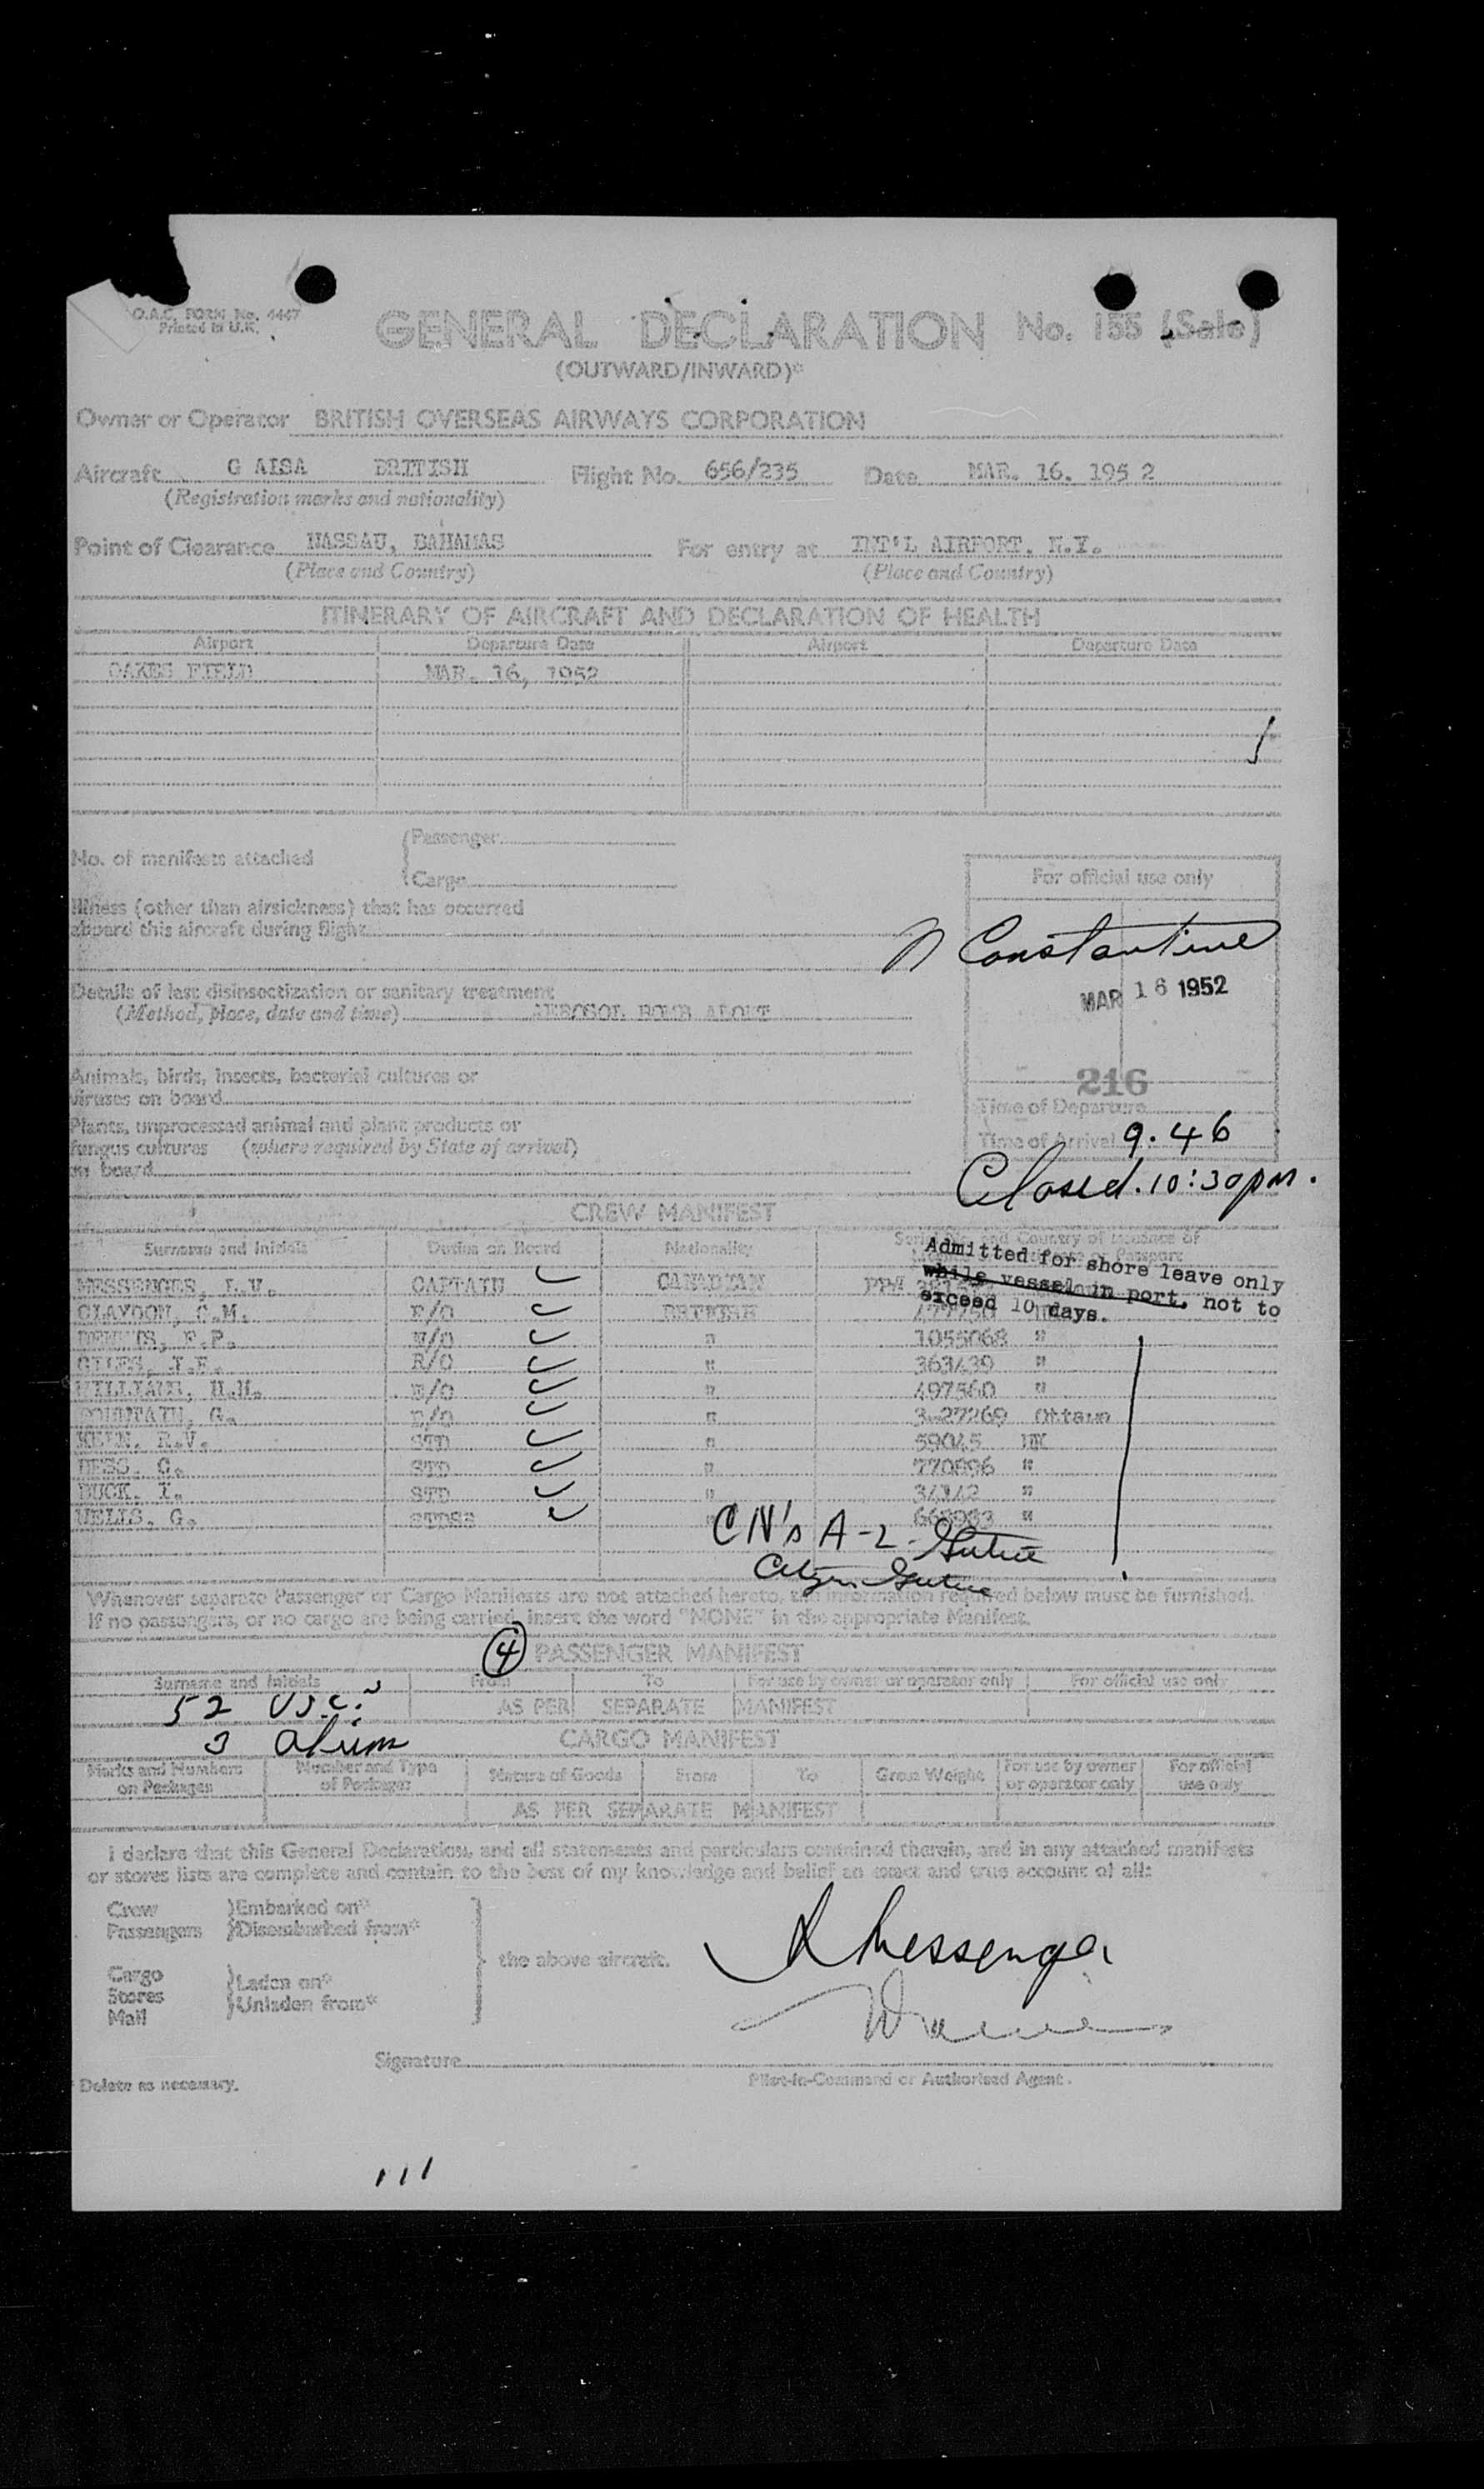 O.A.C. FORM No. 4447
Printed in U.K.
GENERAL DECLARATION No. 155 (Sale)
(OUTWARD/INWARD)*
Owner or Operator BRITISH OVERSEAS AIRWAYS CORPORATION
Aircraft G AISA BRITISH Flight No. 656/235 Date MAR. 16. 195 2
(Registration marks and nationality)
Point of Clearance NASSAU, BAHAMAS For entry at INT'L AIRPORT. N.Y.
(Place and Country) (Place and Country)
ITINERARY OF AIRCRAFT AND DECLARATION OF HEALTH
Airport Departure Date Airport Departure Date
OAKES FIELD MAR. 16, 1952
No. of manifests attached
Passenger
Cargo
Illness (other than airsickness) that has occurred
aboard this aircraft during flight
For official use only
N Constantine
MAR 16 1952
Details of last disinsectization or sanitary treatment
(Method, place, date and time) AEROSOL BOMB
216
Animals, birds, insects, bacterial cultures or
viruses on board
Time of Departure
Plants, unprocessed animal and plant products or
fungus cultures (where required by State of arrival)
on board
Time of Arrival 9.46
Closed. 10:30pm.
CREW MANIFEST
Surname and Initials Duties on Board Nationality and Country of Issuance of
Admitted for shore leave only
while vessel in port, not to
exceed 10 days.
MESSENGER, CAPTAIN CANADIAN
CLAYDON, C.M. F/O BRITISH
F.P. " 1055068 "
GILES, R/O " 363439 "
H.H. " 497560 "
G. " 3-27269 Ottawa
R.V. STD " 59045 UK
C. STD " 770896 "
BUCK. I. STD " 34142 "
WELLS. G. STDSS "
CN's A-2
Whenever separate Passenger or Cargo Manifests are not attached hereto, the information required below must be furnished.
If no passengers, or no cargo are being carried, insert the word "NONE" in the appropriate Manifest.
4 PASSENGER MANIFEST
Surname and Initials From To For use by owner or operator only For official use only
52 USC's AS PER SEPARATE MANIFEST
3
CARGO MANIFEST
Marks and Numbers on Packages Number and Type of Packages Nature of Goods From To Gross Weight For use by owner or operator only For official use only
AS PER SEPARATE MANIFEST
I declare that this General Declaration, and all statements and particulars contained therein, and in any attached manifests
or stores lists are complete and contain to the best of my knowledge and belief an exact and true account of all:
Crew Embarked on*
Passengers Disembarked from*
the above aircraft.
Messenger
Cargo
Stores Laden on*
Mail Unladen from*
Signature
Pilot-in-Command or Authorised Agent.
* Delete as necessary.